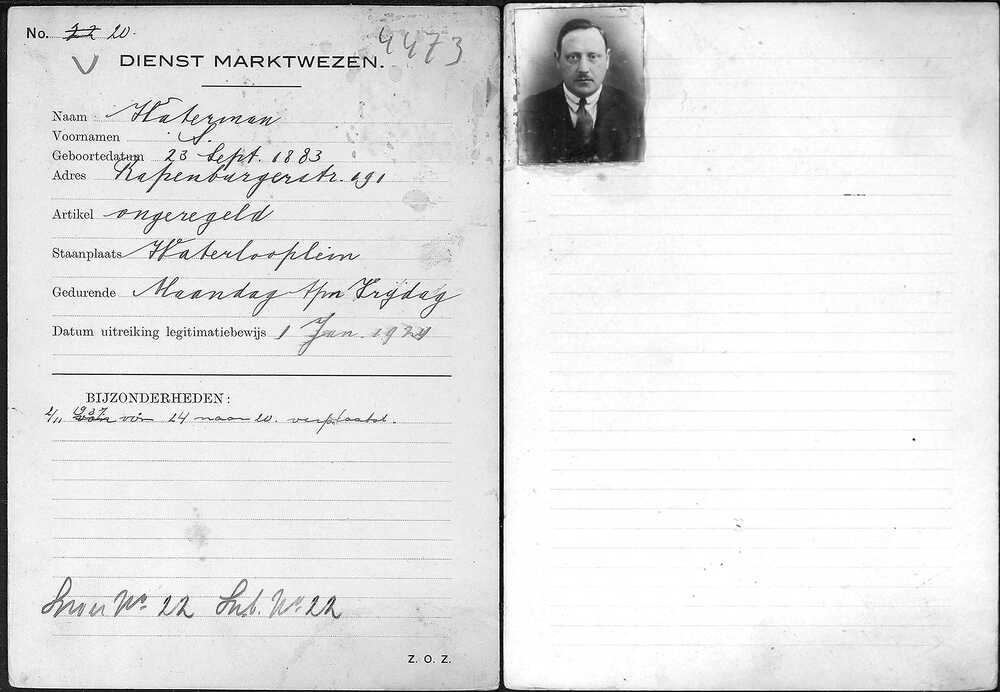 No. 22 20.
4473
DIENST MARKTWEZEN.
Naam Waterman
Voornamen S.
Geboortedatum 23 Sept. 1883
Adres Rapenburgerstr. 191
Artikel ongeregeld
Staanplaats Waterlooplein
Gedurende Maandag t/m Vrijdag
Datum uitreiking legitimatiebewijs 1 Jan. 1924
BIJZONDERHEDEN:
2/11 1937 van 24 naar 20. verplaatst.
No. 22 Sub. No. 22
Z. O. Z.